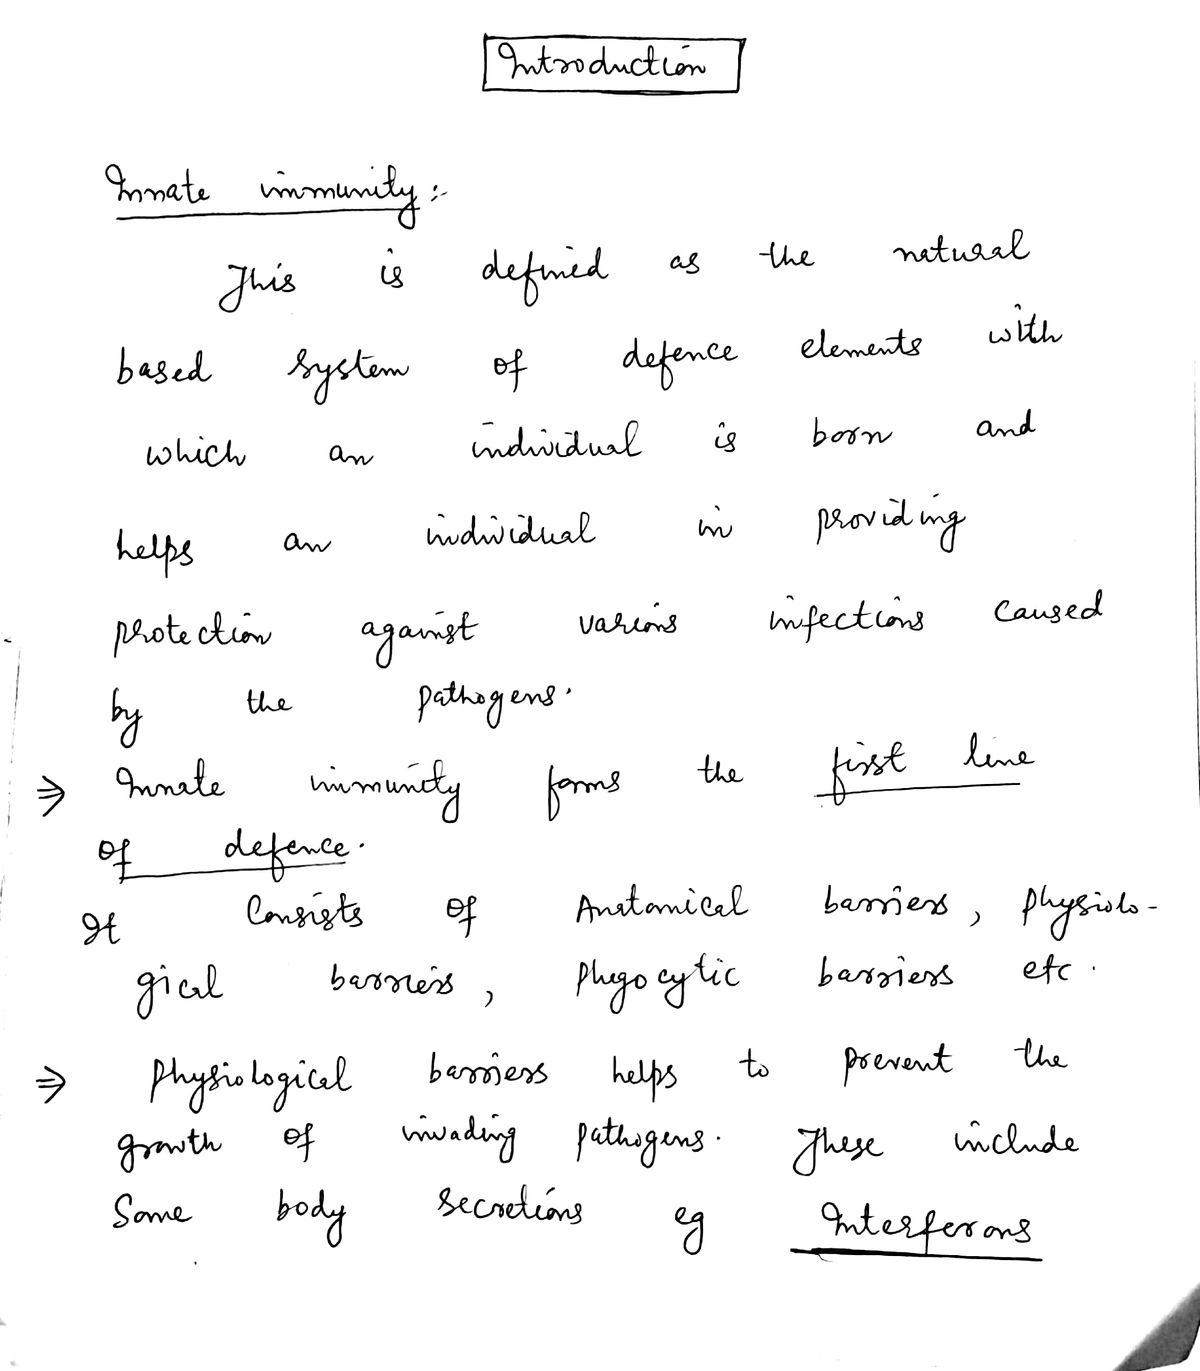 Introduction
Innate immunity:-
This is defined as the natural
based system of defence elements with
which an individual is born and
helps an individual in providing
protection against various infections caused
by the pathogens.
⇒ Innate immunity forms the first line
of defence.
It Consists of Anatomical barriers, physiolo-
gical barriers, phagocytic barriers etc.
⇒ Physiological barriers helps to prevent the
growth of invading pathogens. These include
Some body secretions eg Interferons